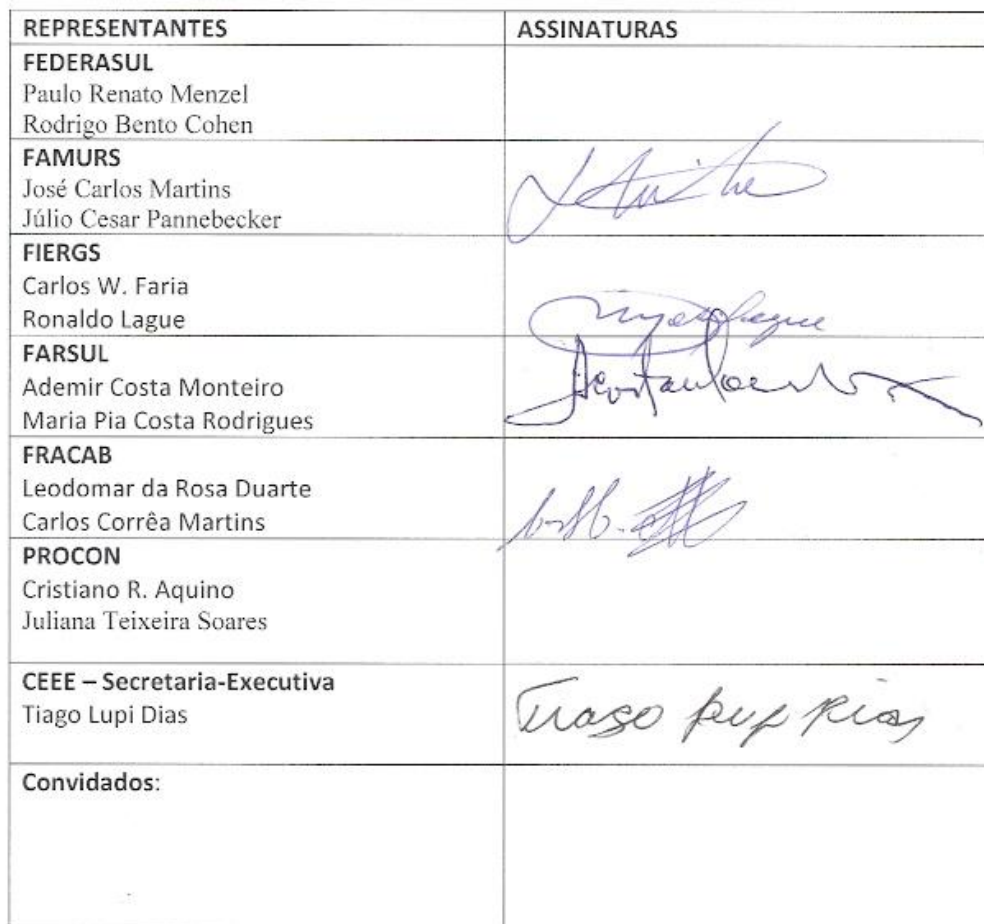 REPRESENTANTES
ASSINATURAS
FEDERASUL
Paulo Renato Menzel
Rodrigo Bento Cohen
FAMURS
José Carlos Martins
Júlio Cesar Pannebecker
FIERGS
Carlos W. Faria
Ronaldo Lague
FARSUL
Ademir Costa Monteiro
Maria Pia Costa Rodrigues
FRACAB
Leodomar da Rosa Duarte
Carlos Corrêa Martins
PROCON
Cristiano R. Aquino
Juliana Teixeira Soares
CEEE – Secretaria-Executiva
Tiago Lupi Dias
Tiago
Convidados: